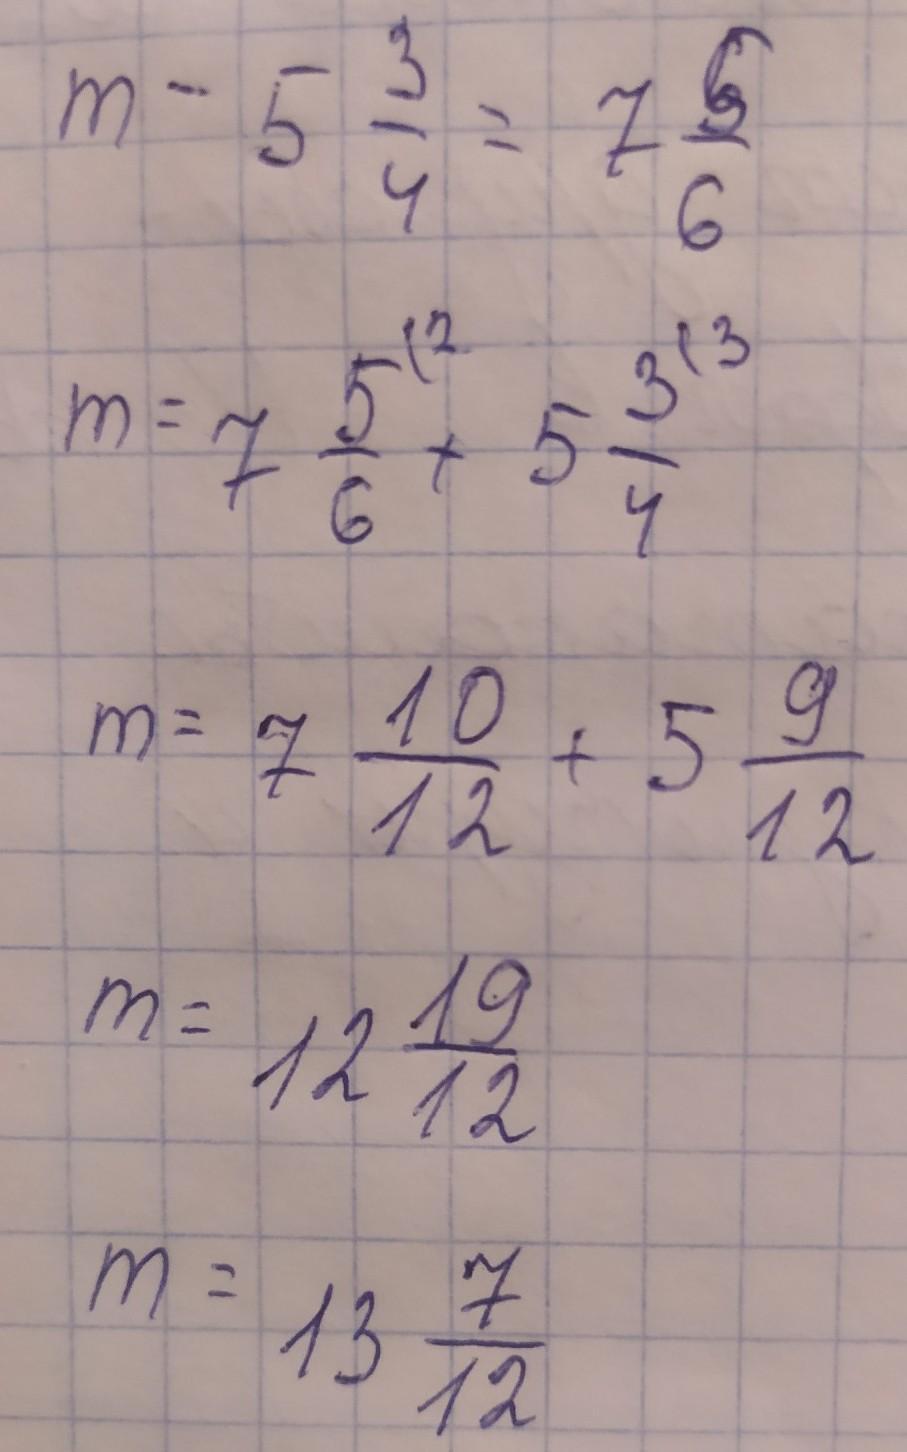 m - 5 3/4 = 7 5/6
m = 7 5/6 (2 + 5 3/4 (3
m = 7 10/12 + 5 9/12
m = 12 19/12
m = 13 7/12